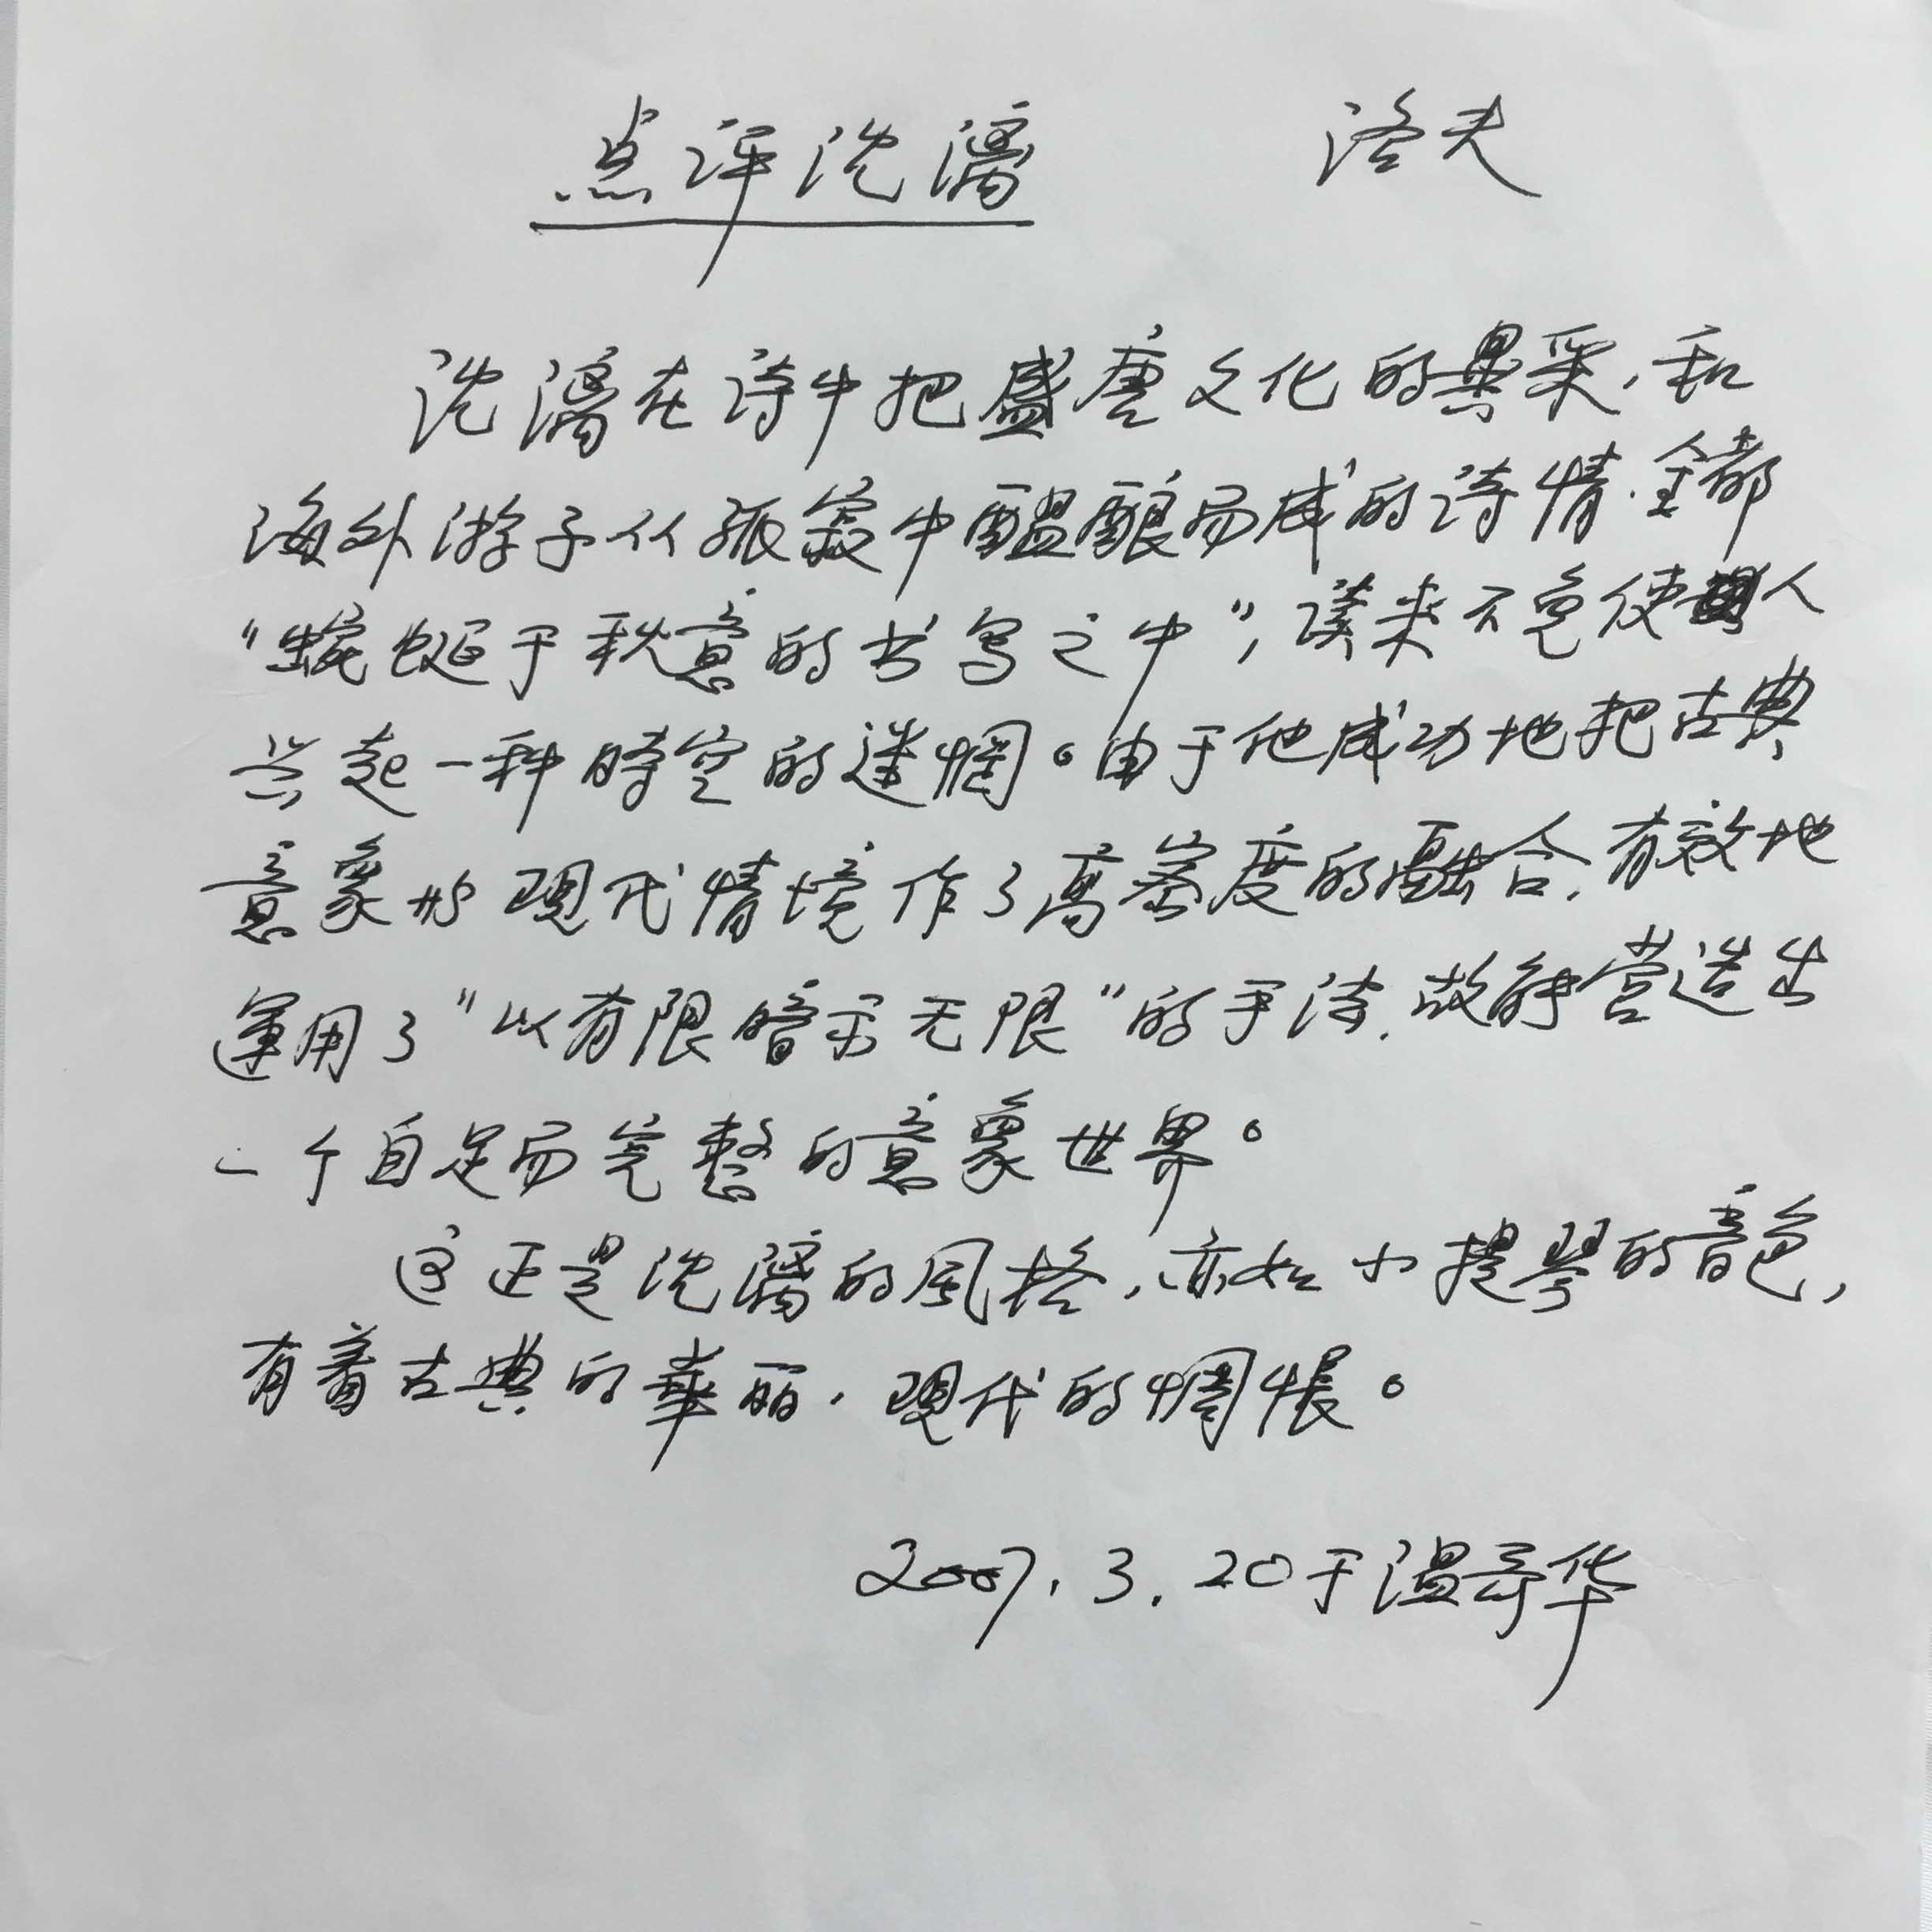 点评沈漓 洛夫
沈漓在诗中把盛唐文化的異采，和
海外游子从孤寂中醞酿而成的诗情，全都
“蜿蜒于秋意的书写之中”，读来不免使人
兴起一种時空的迷惘。由于他成功地把古典
意象與现代情境作了高密度的融合，有效地
運用了“以有限暗示无限”的手法，故能营造出
一个自足而完整的意象世界。
这正是沈漓的风格，亦如小提琴的音色，
有着古典的華丽，现代的惆怅。
2007.3.20于温哥华